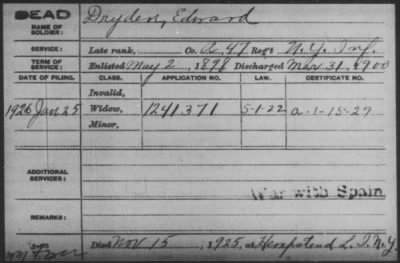 DEAD Dryden, Edward
NAME OF SOLDIER:
SERVICE: Late rank, Co. A, 47 Reg't N.Y. Inf.
TERM OF SERVICE: Enlisted May 2, 1898 Discharged Mar. 31, 1900
DATE OF FILING. CLASS. APPLICATION NO. LAW. CERTIFICATE NO.
Invalid,
1926 Jan 25 Widow, 1241371 5-1-22 a-1-15-27
Minor,
ADDITIONAL SERVICES:
War with Spain
REMARKS:
Died Nov 15, 1925, at Hempstead L. I. N.Y.